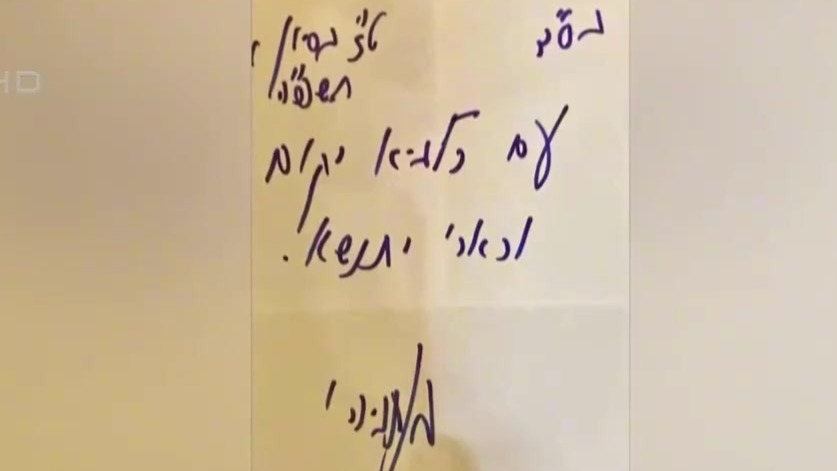 HD
בס"ד ט"ז בסיון
תשפ"ה
עם כלביא יקום
וכארי יתנשא.